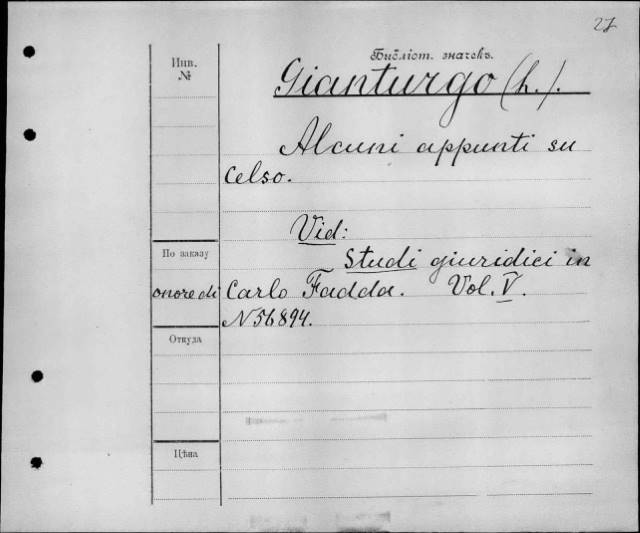 27
Инв.
№
Библіот. значекъ.
Gianturgo (L.).
Alcuni appunti su
Celso.
Vid:
Studi giuridici in
По заказу
onore di Carlo Fadda. Vol. V.
N 56894.
Откуда
Цѣна